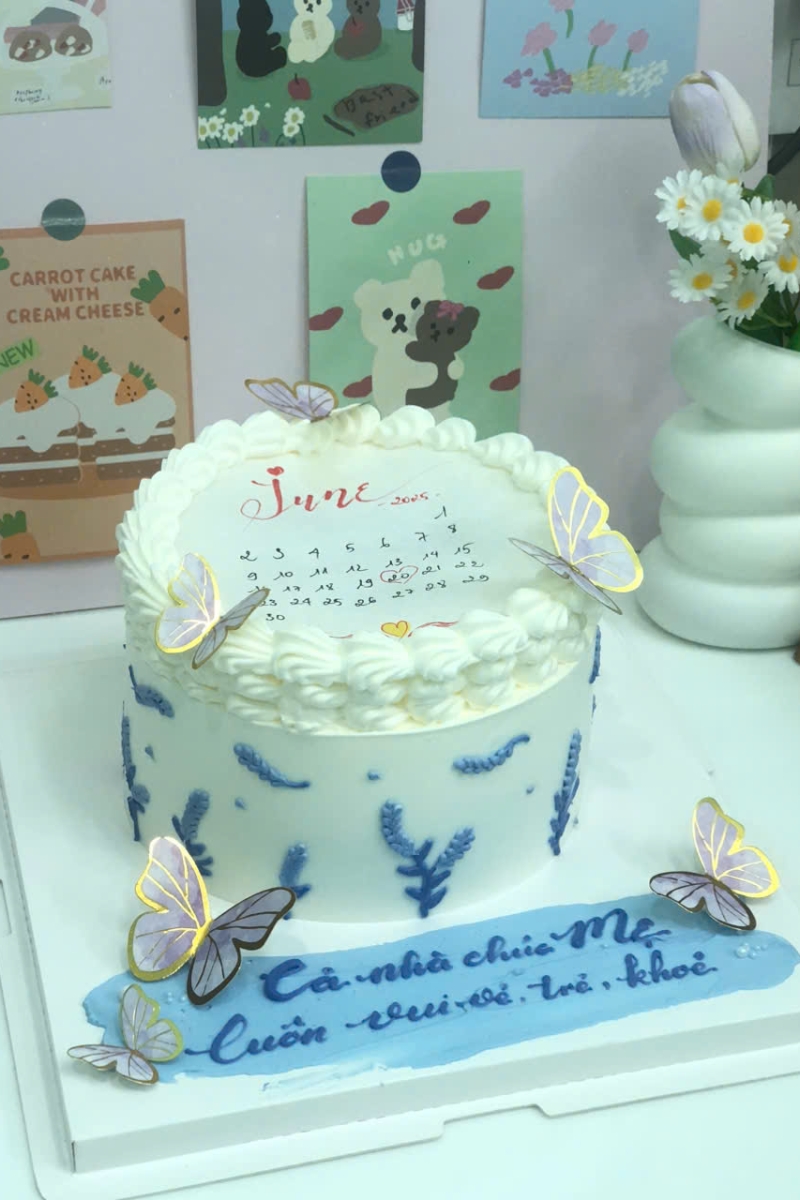 Best
friend
HUG
CARROT CAKE
WITH
CREAM CHEESE
NEW
June 2025
1
2 3 4 5 6 7 8
9 10 11 12 13 14 15
17 18 19 20 21 22
23 24 25 26 27 28 29
30
Cả nhà chúc Mẹ
luôn vui vẻ, trẻ, khoẻ